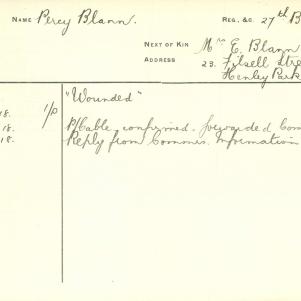 NAME Percy Blann. REG. &C. 27th B
NEXT OF KIN Mrs E. Blann
ADDRESS 23. Filsell Stre
Henley Park
"Wounded"
18. 1/p
18. P/Cable confirmed. forwarded Com
18. Reply from Commrs. Information